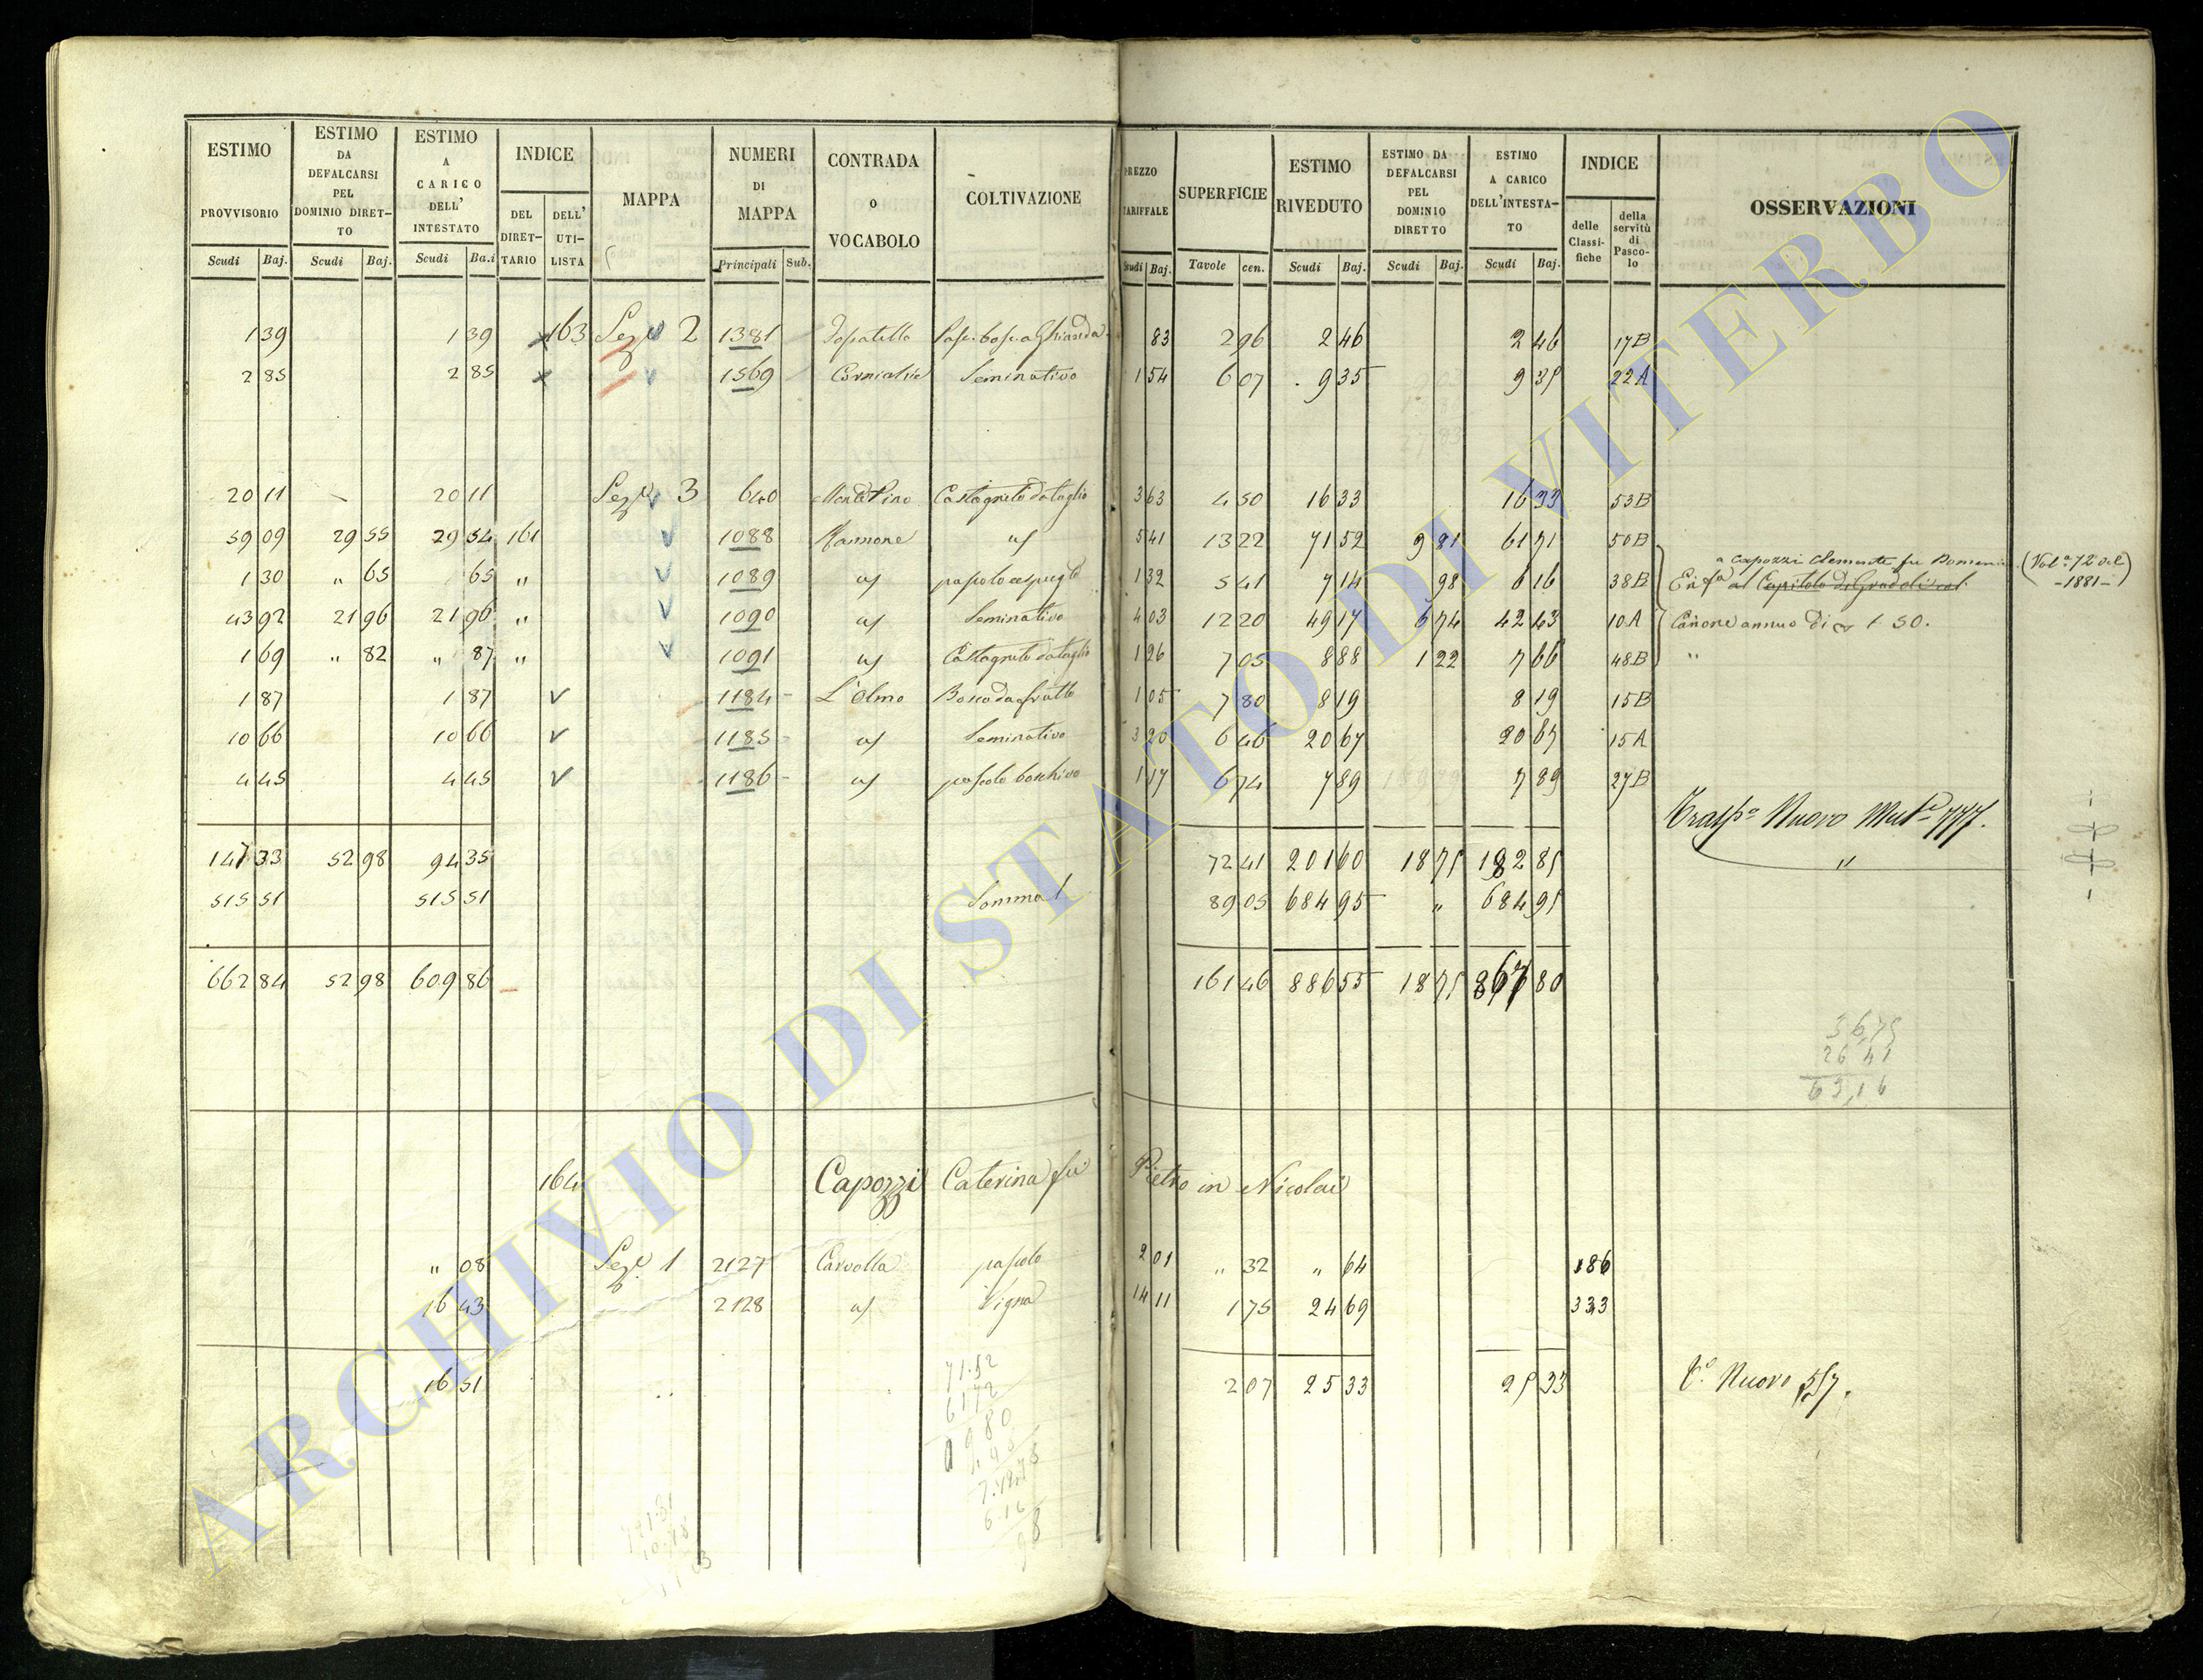 ESTIMO PROVVISORIO Scudi Baj.
ESTIMO DA DEFALCARSI PEL DOMINIO DIRETTO Scudi Baj.
ESTIMO A CARICO DELL' INTESTATO Scudi Ba.i
INDICE DEL DIRETTARIO DELL' UTILISTA
MAPPA
NUMERI DI MAPPA Principali Sub.
CONTRADA o VOCABOLO
COLTIVAZIONE
PREZZO TARIFFALE Scudi Baj.
SUPERFICIE Tavole cen.
ESTIMO RIVEDUTO Scudi Baj.
ESTIMO DA DEFALCARSI PEL DOMINIO DIRETTO Scudi Baj.
ESTIMO A CARICO DELL'INTESTATO Scudi Baj.
INDICE delle Classifiche della servitù di Pascolo
OSSERVAZIONI
1 39 1 39 163 Sez.e 2 1381 83 2 96 2 46 2 46 17B
2 85 2 85 1569 Seminativo 1 54 6 07 9 35 9 35 22A
20 11 20 11 Sez.e 3 640 Monte Piao Castagneto da taglio 3 63 4 50 16 33 16 33 53B
59 09 29 55 29 54 161 1088 5 41 13 22 71 52 9 81 61 71 50B
1 30 " 65 65 " 1089 1 32 5 41 7 14 98 6 16 38B
a Capozzi Clemente fu Domenico (Vol.e 72 del -1881-)
Enf.a al Capitolo di Gradoli
43 92 21 96 21 96 " 1090 Seminativo 4 03 12 20 49 17 6 74 42 43 10A Canone annuo di 1 50.
1 69 " 82 " 87 " 1091 Castagneto da taglio 1 26 7 05 8 88 1 22 7 66 48B "
1 87 1 87 1184 L'Olmo Bosco da frutto 1 05 7 80 8 19 8 19 15B
10 66 10 66 1185 Seminativo 3 20 6 46 20 67 20 67 15A
4 45 4 45 1186 pascolo boschivo 1 17 6 74 7 89 7 89 27B
Trasp.o Nuovo 777.
147 33 52 98 94 35 72 41 201 60 18 75 182 85 "
515 51 515 51 Somma 89 05 684 95 " 684 95
662 84 52 98 609 86 161 46 886 55 18 75 867 80
36 75
26 41
63,16
164 Capozzi Caterina fu Pietro in Nicolai
" 08 Sez.e 1 2127 Carvolla pascolo 2 01 " 32 " 64 186
16 43 2128 Vigna 14 11 1 75 24 69 333
16 51 2 07 25 33 25 33 Nuovo 557.
71.52
ARCHIVIO DI STATO DI VITERBO